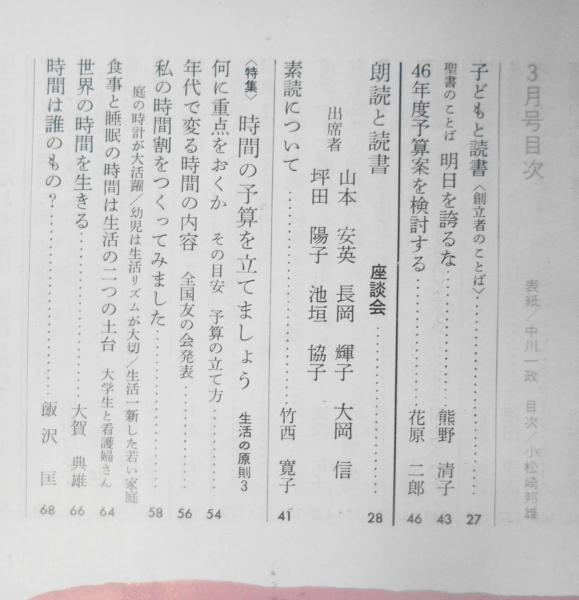 3月号目次
表紙／中川一政 目次 小松崎邦雄
子どもと読書〈創立者のことば〉 27
聖書のことば 明日を誇るな 熊野 清子 43
46年度予算案を検討する 花原 二郎 46
朗読と読書 座談会 28
出席者 山本 安英 長岡 輝子 大岡 信
坪田 陽子 池垣 協子
素読について 竹西 寛子 41
〈特集〉 時間の予算を立てましょう 生活の原則3
何に重点をおくか その目安 予算の立て方 54
年代で変る時間の内容 全国友の会発表 56
私の時間割をつくってみました 58
庭の時計が大活躍／幼児は生活リズムが大切／生活一新した若い家庭
食事と睡眠の時間は生活の二つの土台 大学生と看護婦さん 64
世界の時間を生きる 大賀 典雄 66
時間は誰のもの？ 飯沢 匡 68